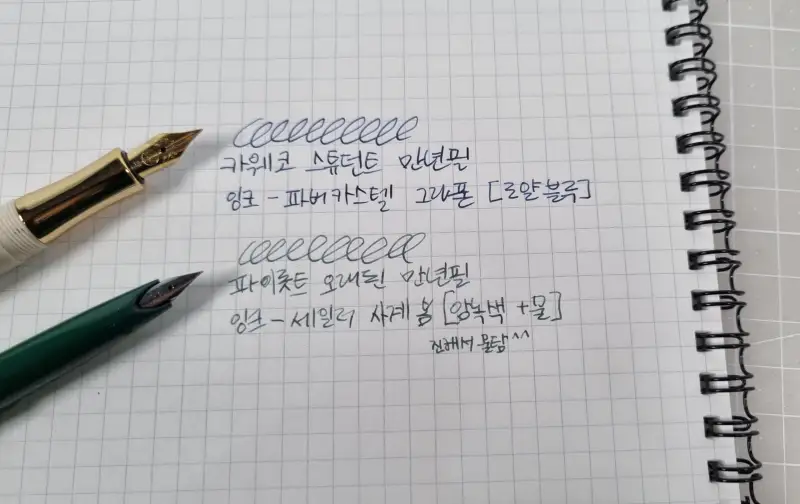 카웨코 스튜던트 만년필
잉크 - 파버카스텔 그라폰 [로얄블루]
파이롯트 오래된 만년필
잉크 - 세일러 사계 봄 [암녹색 + 물]
진해서 물탐^^